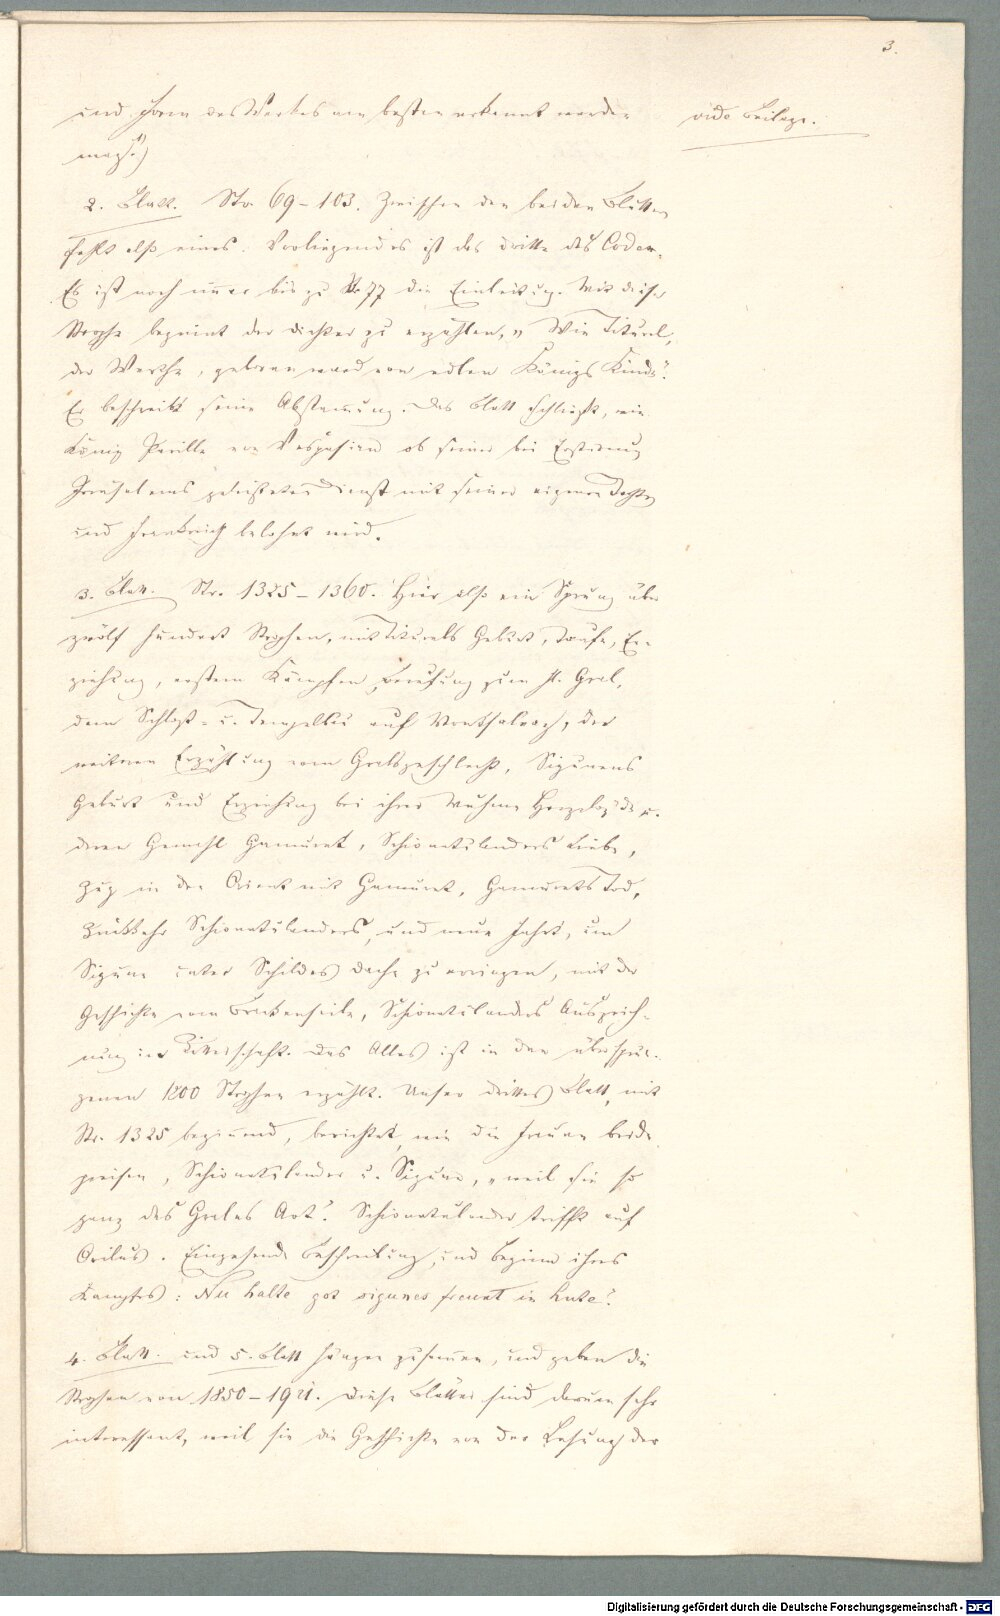 3.
und Form des Werkes am besten erkannt werden
vide Beilage.
mag.¹)
2. Blatt. Str. 69–103. Zwischen den beiden Blättern
fehlt also eines. Vorliegendes ist das dritte des Codex.
Es ist noch immer bis zu Str. 77 die Einleitung. Mit dieser
Strophe beginnt der Dichter zu erzählen, „Wie Titurel,
der Werthe, geboren ward von edlen Königs Kinde".
Er beschreibt seine Abstammung. Das Blatt schließt, wie
König Parille von Vespasian ob seiner bei Erstürmung
Jerusalems geleisteten Dienst mit seiner eigenen Tochter
und Frankreich belohnt wird.
3. Blatt. Str. 1325–1360. Hier also ein Sprung über
zwölf hundert Strophen, mit Titurels Geburt, Taufe, Er-
ziehung, erstem Kämpfen, Berufung zum h. Gral,
dem Schloß- u. Tempelbau auf Montsalvatsch, der
weiteren Erzählung vom Gralsgeschlecht, Sigunens
Geburt und Erziehung bei ihrer Muhme Herzeloyde u.
deren Gemahl Gamuret, Schionatulanders Liebe,
Zug in den Orient mit Gamuret, Gamurets Tod,
Rückkehr Schionatulanders, und neue Fahrt, um
Sigune unter Schildes Dache zu erringen, mit der
Geschichte vom Brackenseile, Schionatulanders Auszeich-
nung in Ritterschaft. Das Alles ist in den übersprun-
genen 1200 Strophen erzählt. Unser drittes Blatt, mit
Str. 1325 beginnend, berichtet, wie die Frauen beide
preisen, Schionatulander u. Sigune, „weil sie so
ganz des Grales Art". Schionatulander trifft auf
Orilus. Eingehende Beschreibung und Beginn ihres
Kampfes: Nu halte got sigunes freunt in hute".
4. Blatt. und 5. Blatt hängen zusammen, und geben die
Strophen von 1850–1921. Diese Blätter sind darum sehr
interessant, weil sie die Geschichte von der Lesung des